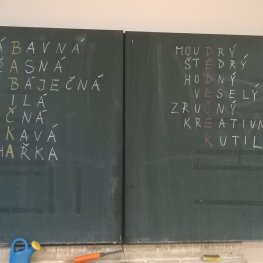 ÁBAVNÁ
ŽASNÁ
BÁJEČNÁ
ILÁ
ČNÁ
KAVÁ
HAŘKA
MOUDRÝ
ŠTĚDRÝ
HODNÝ
VESELÝ
ZRUČNÝ
KREATIVN
KUTIL